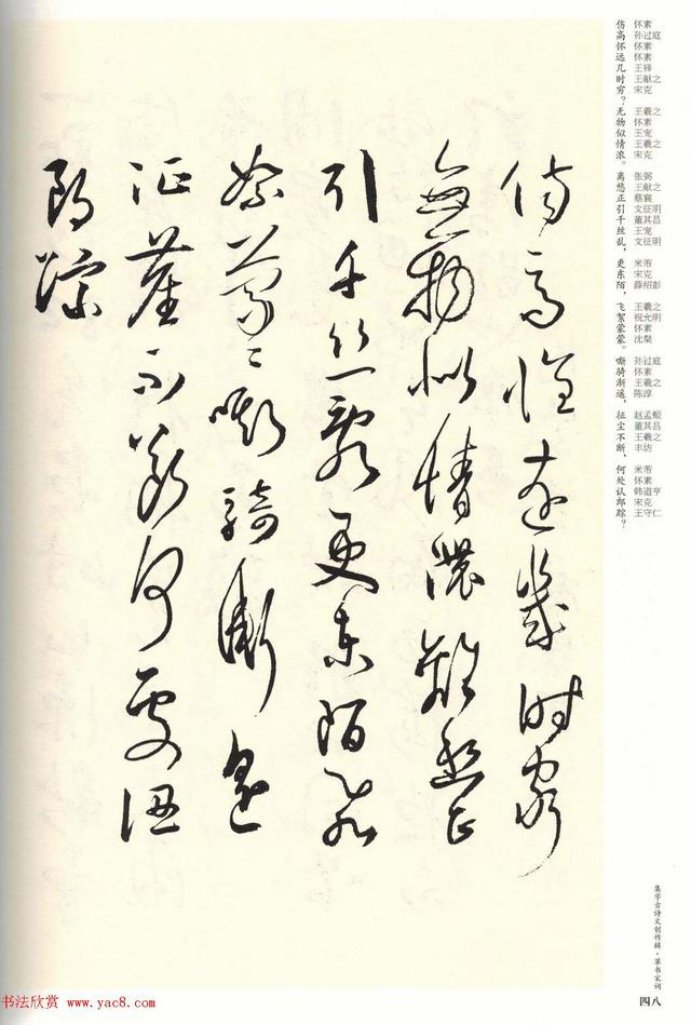 伤高怀远几时穷？无物似情浓。离愁正引千丝乱，更东陌，飞絮蒙蒙。嘶骑渐遥，征尘不断，何处认郎踪？
怀素
孙过庭
怀素
怀素
王铎
王献之
宋克
王羲之
怀素
王宠
王羲之
宋克
张弼
王献之
蔡襄
文征明
董其昌
王宠
文征明
米芾
宋克
薛绍彭
王羲之
祝允明
怀素
沈粲
孙过庭
怀素
王羲之
陈淳
赵孟頫
董其昌
王羲之
丰坊
米芾
怀素
韩道亨
宋克
王守仁
傷高懷遠幾時窮
無物似情濃離愁正
引千丝亂更東陌飛
絮蒙々嘶騎漸遥
征塵不斷何處認
郎蹤
集字古诗文创作辑·草书宋词
四八
书法欣赏 www.yac8.com